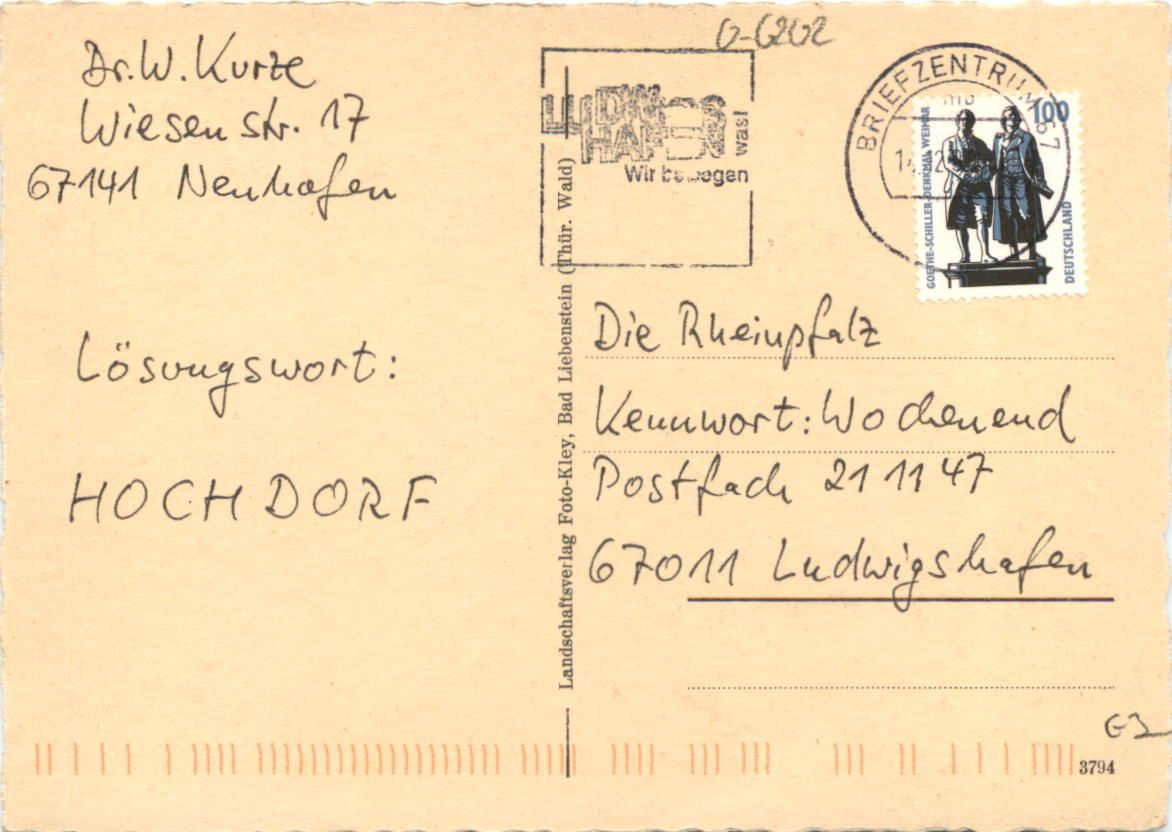 Dr. W. Kurze
Wiesenstr. 17
67141 Neuhofen
Lösungswort:
HOCHDORF
0-6202
LUDWIGS
HAFEN
Wir bewegen was!
BRIEFZENTRUM 67
100
GOETHE-SCHILLER-DENKMAL WEIMAR
DEUTSCHLAND
Landschaftsverlag Foto-Kley, Bad Liebenstein (Thür. Wald)
Die Rheinpfalz
Kennwort: Wochenend
Postfach 21 11 47
67011 Ludwigshafen
3794